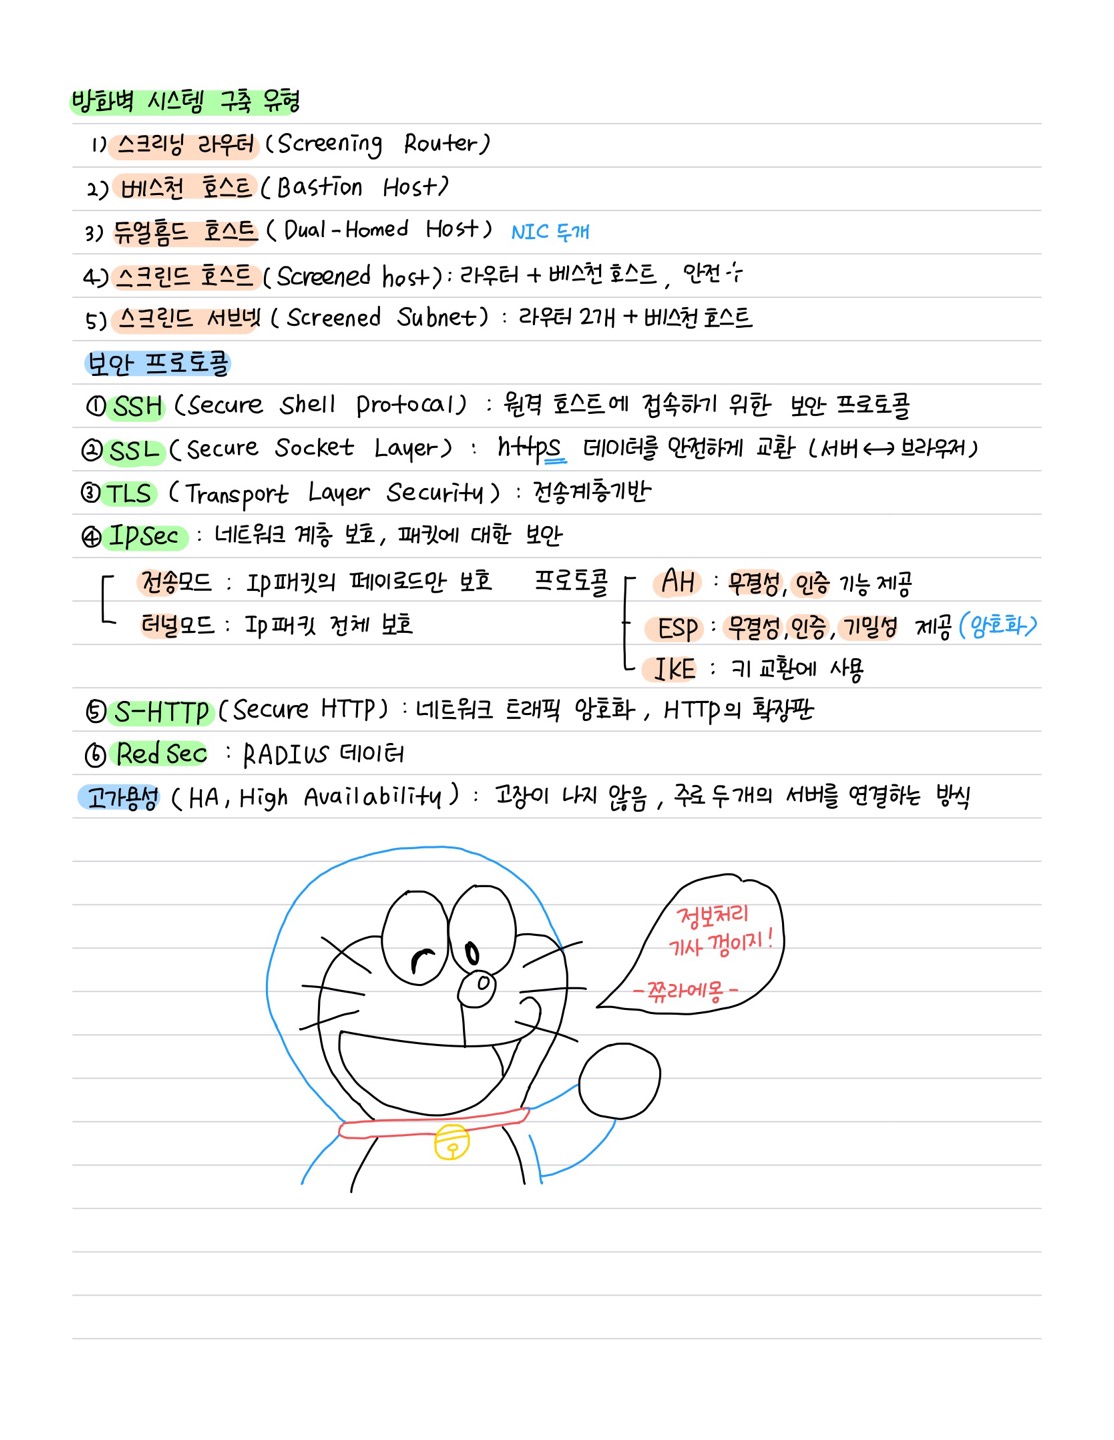 방화벽 시스템 구축 유형
1) 스크리닝 라우터 (Screening Router)
2) 베스천 호스트 (Bastion Host)
3) 듀얼홈드 호스트 (Dual-Homed Host) NIC 두개
4) 스크린드 호스트 (Screened host) : 라우터 + 베스천 호스트, 안전 ·|·
5) 스크린드 서브넷 (Screened Subnet) : 라우터 2개 + 베스천 호스트
보안 프로토콜
① SSH (Secure Shell Protocal) : 원격 호스트에 접속하기 위한 보안 프로토콜
② SSL (Secure Socket Layer) : https 데이터를 안전하게 교환 (서버 ↔ 브라우저)
③ TLS (Transport Layer Security) : 전송계층기반
④ IPSec : 네트워크 계층 보호, 패킷에 대한 보안
전송모드 : Ip패킷의 페이로드만 보호
터널모드 : Ip패킷 전체 보호
프로토콜
AH : 무결성, 인증 기능 제공
ESP : 무결성, 인증, 기밀성 제공 (암호화)
IKE : 키 교환에 사용
⑤ S-HTTP (Secure HTTP) : 네트워크 트래픽 암호화, HTTP의 확장판
⑥ RedSec : RADIUS 데이터
고가용성 (HA, High Availability) : 고장이 나지 않음, 주로 두개의 서버를 연결하는 방식
정보처리
기사 껌이지!
-쮸라에몽-